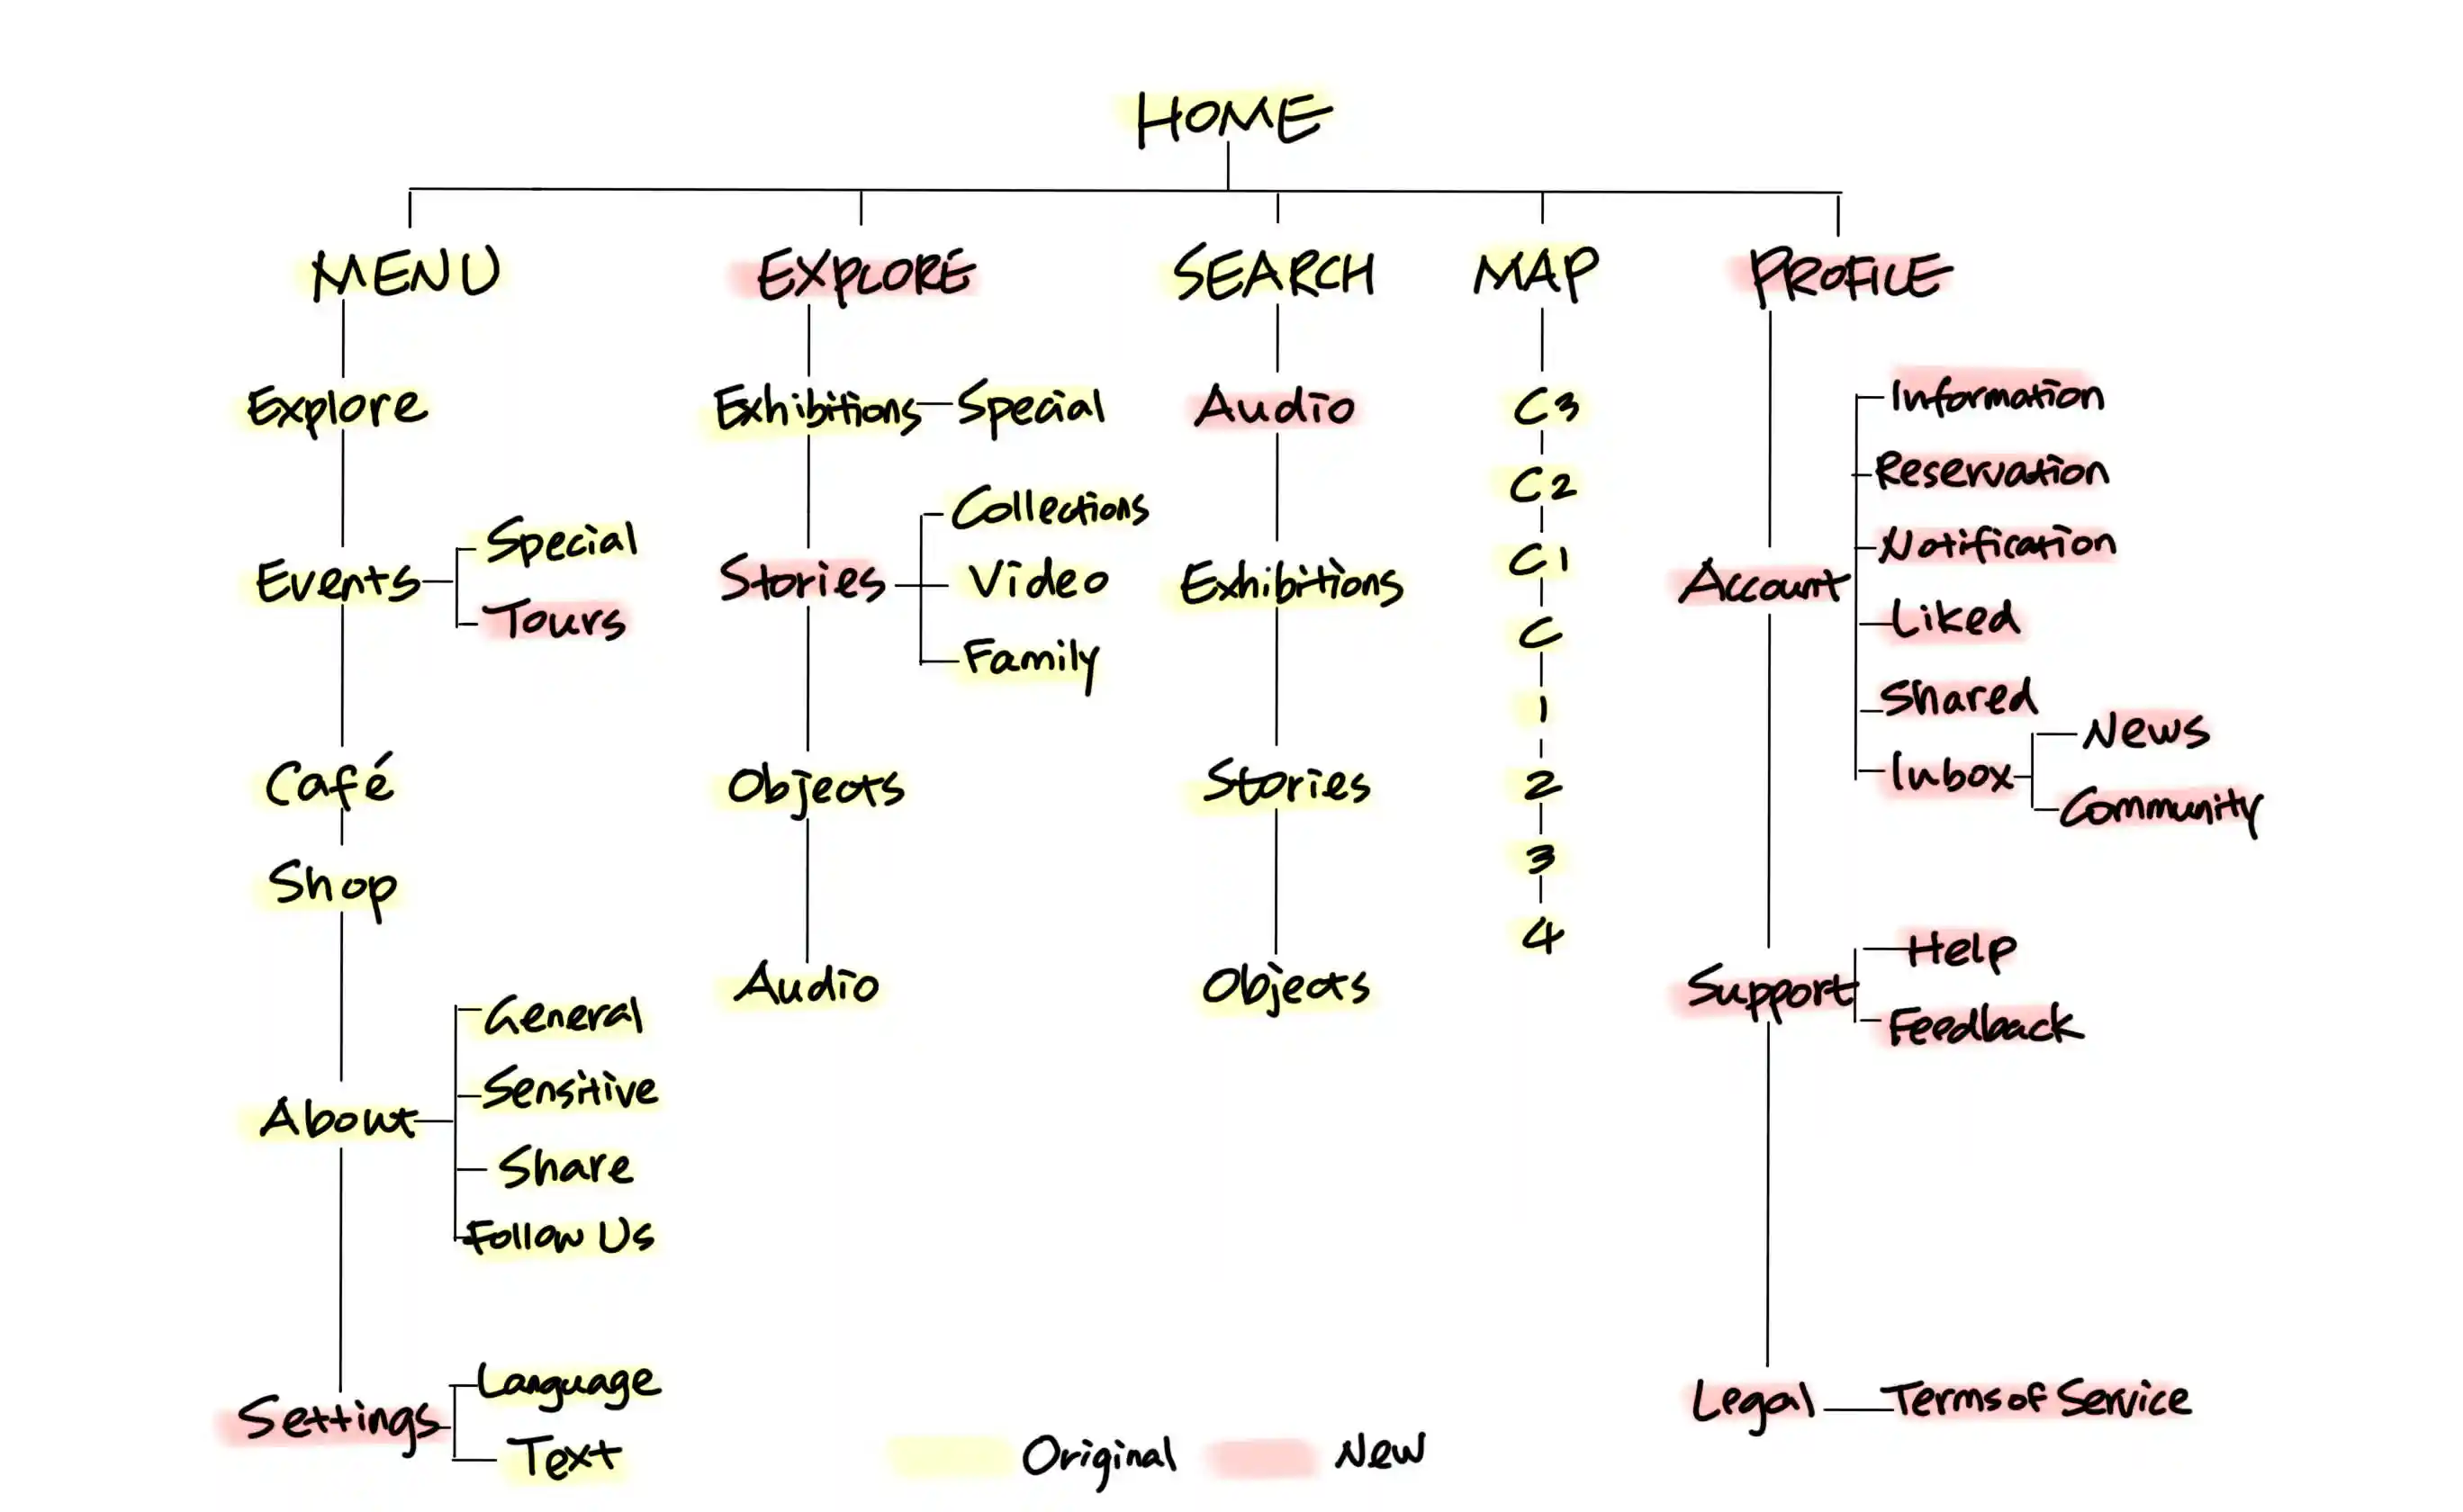 HOME
MENU
EXPLORE
SEARCH
MAP
PROFILE
Explore
Events
Special
Tours
Café
Shop
About
General
Sensitive
Share
Follow Us
Settings
Language
Text
Exhibitions
Special
Stories
Collections
Video
Family
Objects
Audio
Audio
Exhibitions
Stories
Objects
C3
C2
C1
C
1
2
3
4
Account
Information
Reservation
Notification
Liked
Shared
Inbox
News
Community
Support
Help
Feedback
Legal
Terms of Service
Original
New